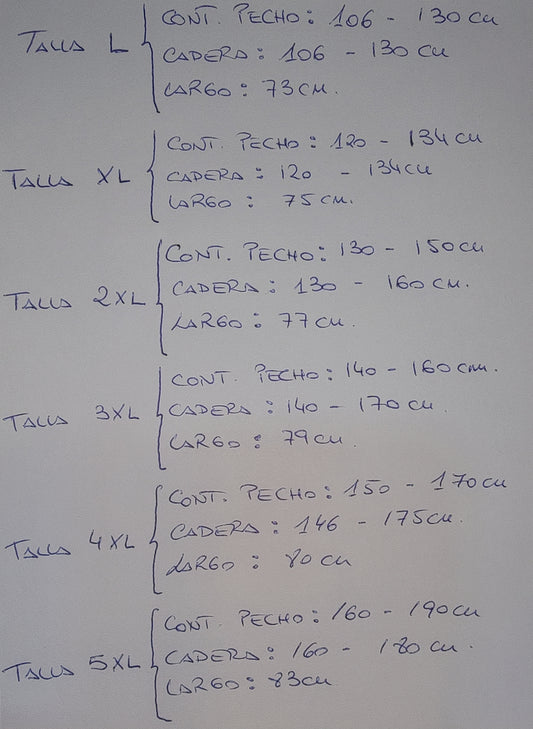 CONT. PECHO: 106 - 130 cm
TALLA L
CADERA: 106 - 130 cm
LARGO: 73 cm.
CONT. PECHO: 120 - 134 cm
TALLA XL
CADERA: 120 - 134 cm
LARGO: 75 cm.
CONT. PECHO: 130 - 150 cm
TALLA 2XL
CADERA: 130 - 160 cm.
LARGO: 77 cm.
CONT. PECHO: 140 - 160 cm.
TALLA 3XL
CADERA: 140 - 170 cm.
LARGO: 79 cm.
CONT. PECHO: 150 - 170 cm
TALLA 4XL
CADERA: 146 - 175 cm.
LARGO: 80 cm
CONT. PECHO: 160 - 190 cm
TALLA 5XL
CADERA: 160 - 180 cm.
LARGO: 83 cm